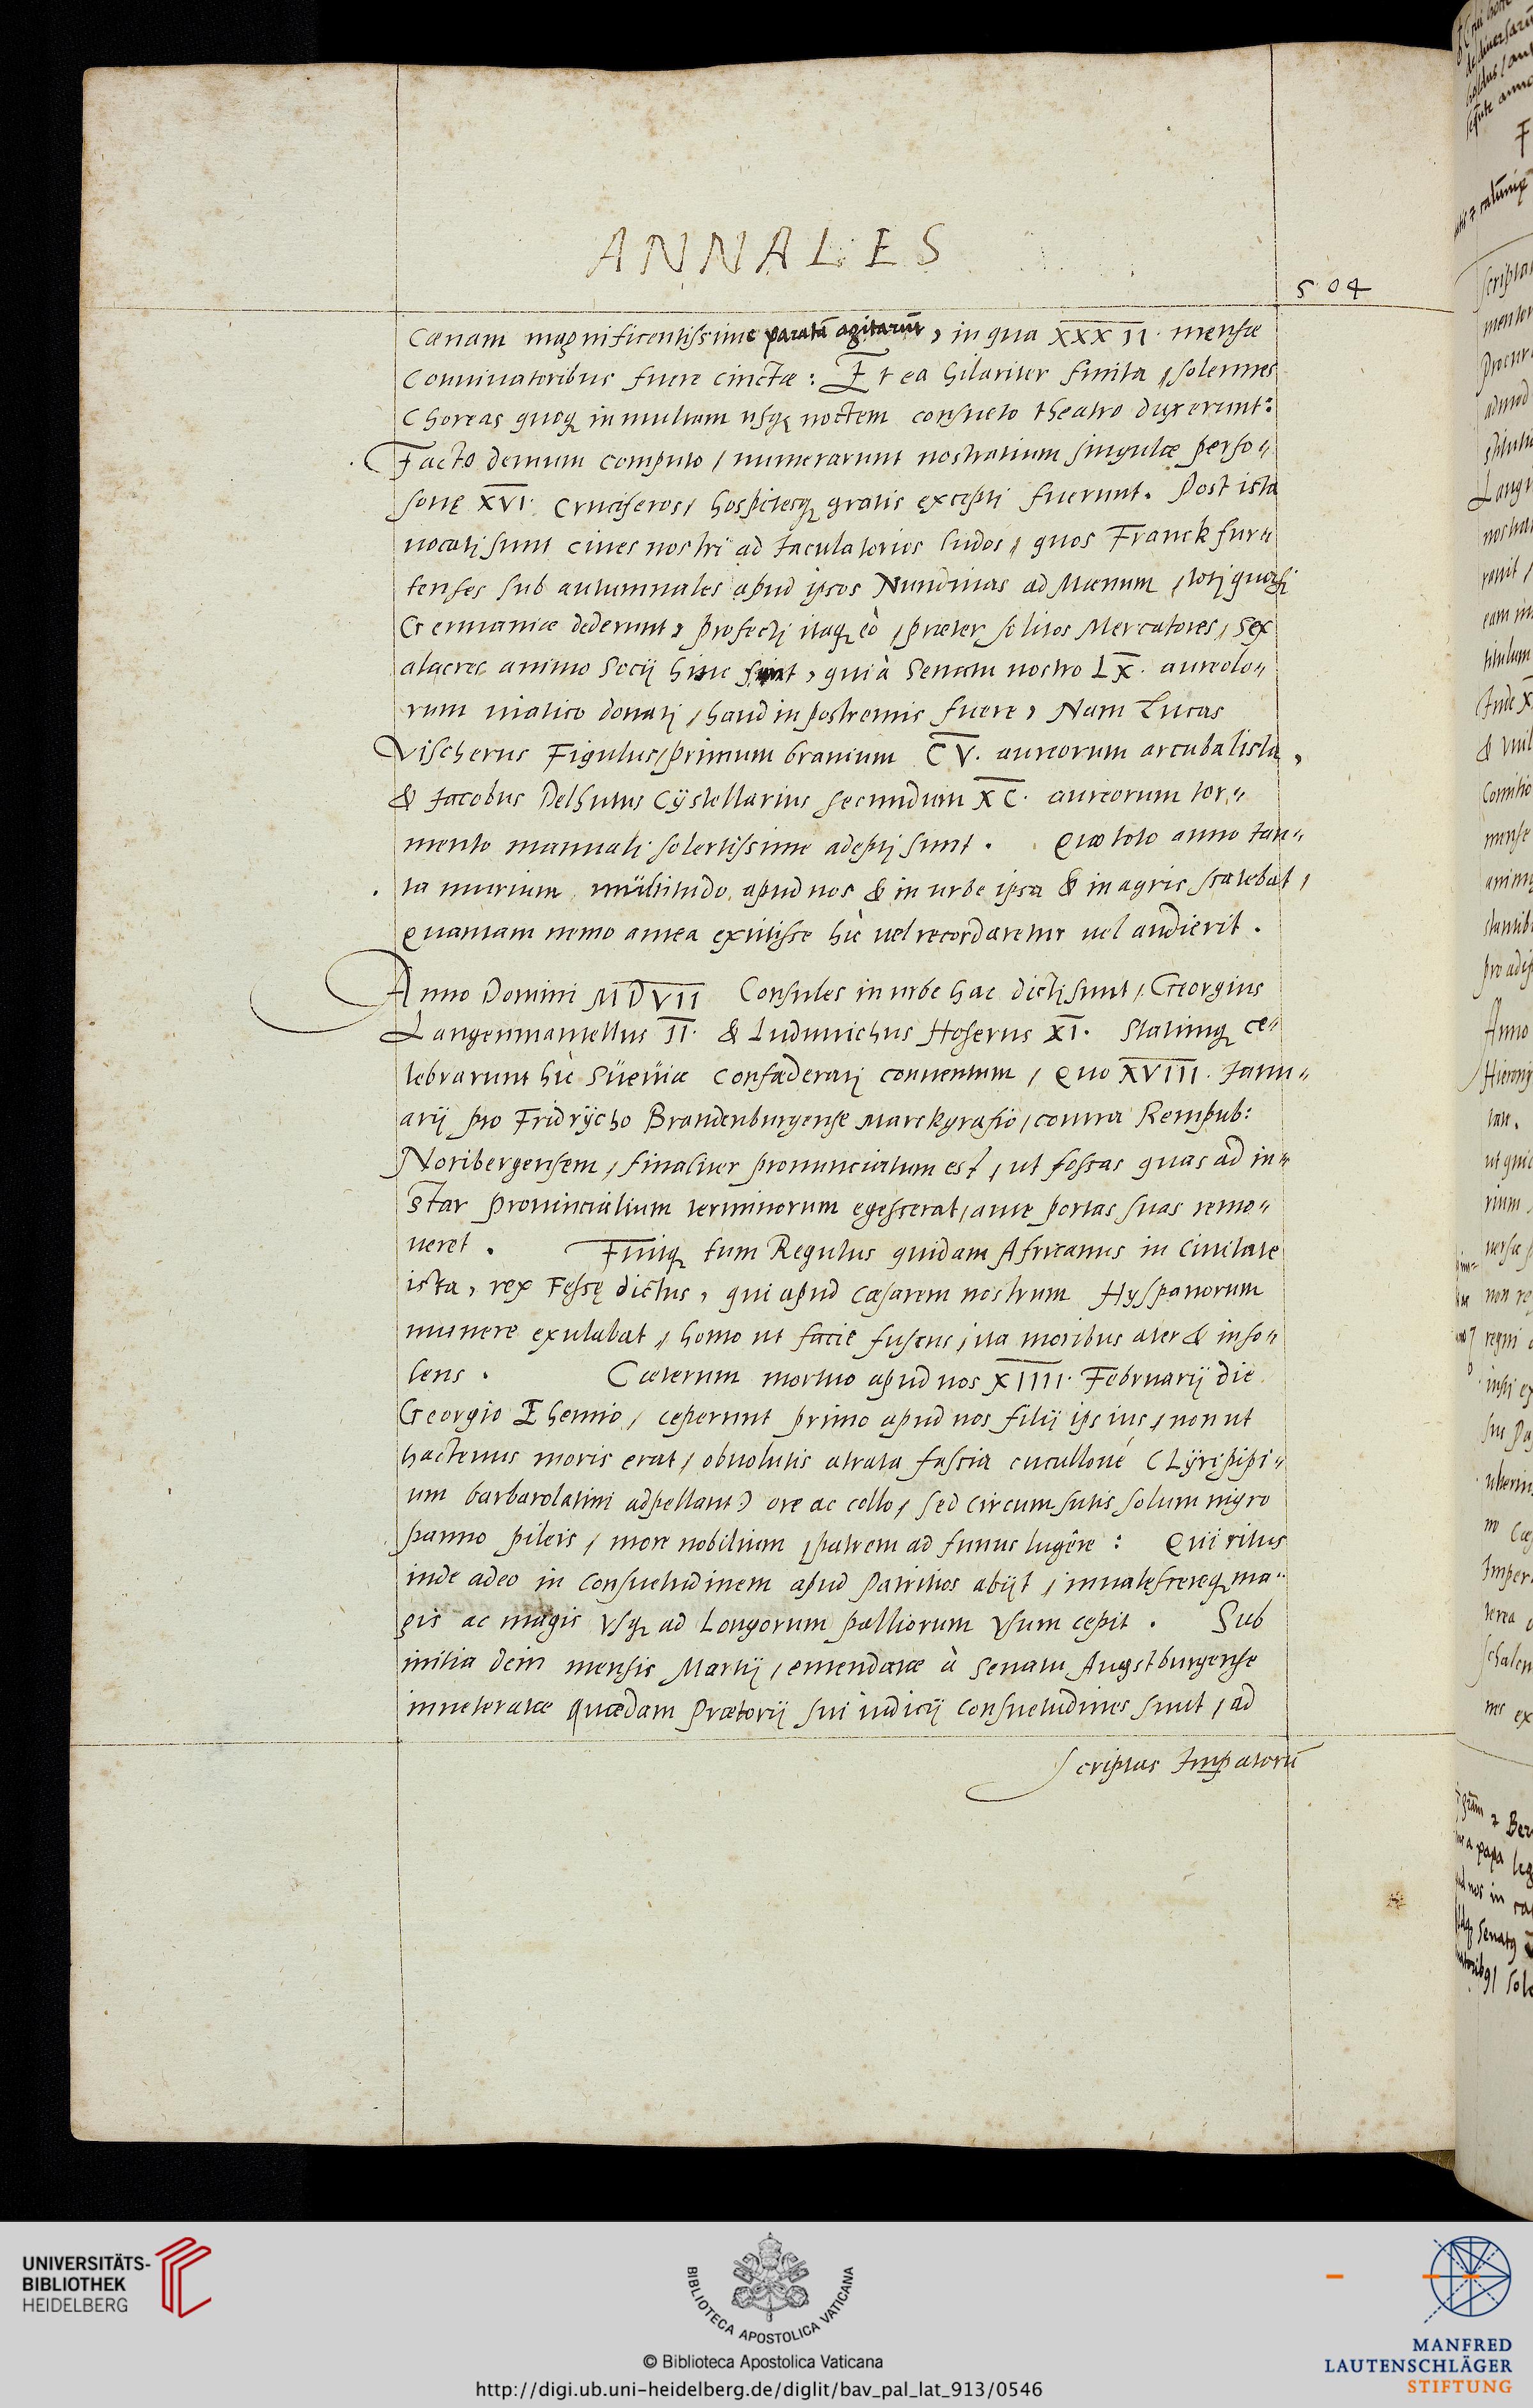 ANNALES
504
Cænam magnificentissime paratā agitarūt, in qua XXXII. mensæ
Conuiuatoribus fuere cinctæ: Et ea hilariter finita, solennes
Choreas quoqꝫ in multam usqꝫ noctem consueto theatro duxerunt:
Facto demum computo, numerarunt nostratium singulæ perso„
sonę XVI. Cruciferos, hospitesqꝫ gratis excepti fuerunt. Post ista
uocati sunt ciues nostri ad Iaculatorios ludos, quos Franckfur„
tenses sub autumnales apud ipsos Nundinas ad Mœnum, toti quasi
Germaniæ dederunt, profecti itaqꝫ eò, præter solitos Mercatores, sex
alacres animo Socij hinc sunt, qui à Senatu nostro LX. aureolo„
rum uiatico donati, haud in postremis fuere, Nam Lucas
Vischerus Figulus, primum brauium CV. aureorum arcubalista,
& Iacobus Delhutus Cystellarius secundum XC. aureorum tor„
mento manuali solertissime adepti sunt. Quo toto anno tan„
ta murium multitudo apud nos & in urbe ipsa & in agris scatebat,
Quantam nemo antea extitisse hic uel recordaretur uel audierit.
Anno Domini MDVII Consules in urbe hac dicti sunt, Georgius
Langenmantellus II. & Luduuichus Hoserus XI. Statimqꝫ ce„
lebrarunt hic Sueuiæ Confœderati conuentum, Quo XVIII. Ianu„
arij pro Fridrycho Brandenburgense Marckgrafio, contra Rempub:
Noribergensem, finaliter pronunciatum est, ut fossas quas ad in„
star Prouincialium terminorum egesserat, ante portas suas remo„
ueret. Fuitqꝫ tum Regulus quidam Africanus in Ciuitate
ista, rex Fessę dictus, qui apud Cæsarem nostrum Hyspanorum
munere exulabat, homo ut facie fuscus, ita moribus ater & inso„
lens. Cæterum mortuo apud nos XIIII. Februarij die
Georgio Ehemio, ceperunt primo apud nos filij ipsius, non ut
hactenus moris erat, obuolutis atrata fascia cucullone (Lyripipi„
um barbarolatini adpellant) ore ac collo, sed circumsutis solum nigro
panno pileis, more nobilium, patrem ad funus lugêre: Qui ritus
inde adeo in consuetudinem apud Patritios abijt, inualescereqꝫ ma„
gis ac magis Vsqꝫ ad Longorum palliorum Vsum cepit. Sub
initia dein mensis Martij, emendatæ à Senatu Augstburgense
inueteratæ quædam Prætorij sui iudicij consuetudines sunt, ad
scriptas Imꝑatorū
UNIVERSITÄTS-
BIBLIOTHEK
HEIDELBERG
BIBLIOTECA APOSTOLICA VATICANA
© Biblioteca Apostolica Vaticana
http://digi.ub.uni-heidelberg.de/diglit/bav_pal_lat_913/0546
MANFRED
LAUTENSCHLÄGER
STIFTUNG